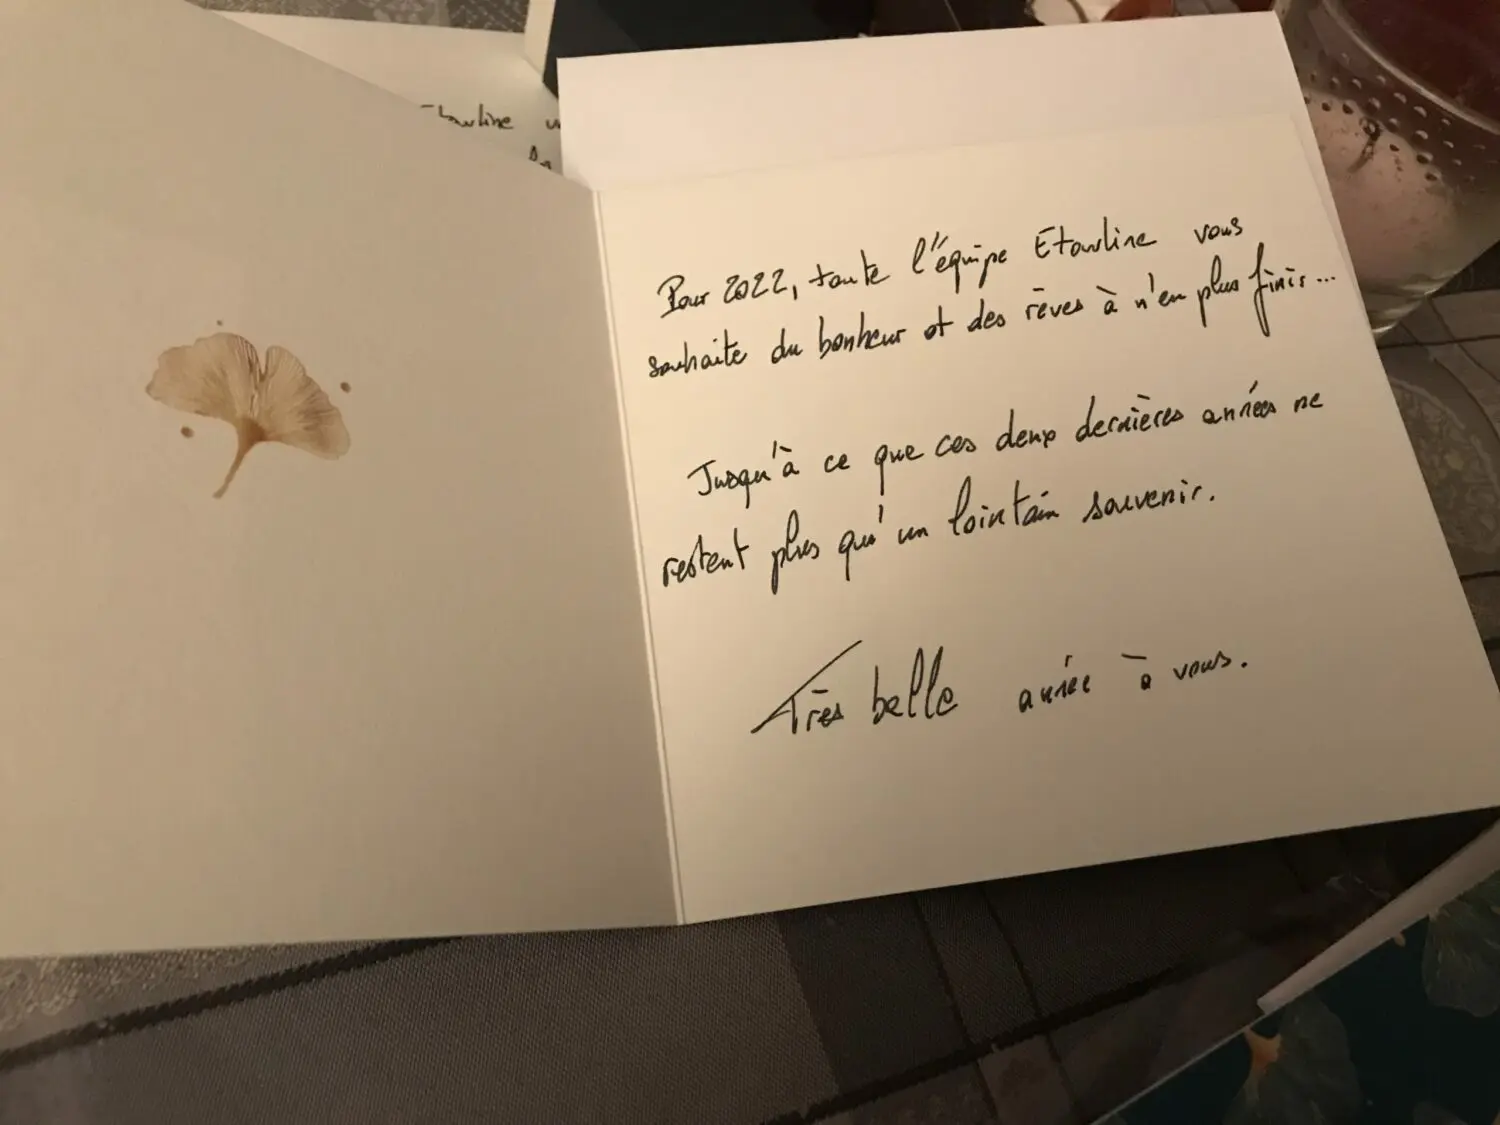 Pour 2022, toute l'équipe Etowline vous
souhaite du bonheur et des rêves à n'en plus finir...
Jusqu'à ce que ces deux dernières années ne
restent plus qu'un lointain souvenir.
Très belle année à vous.